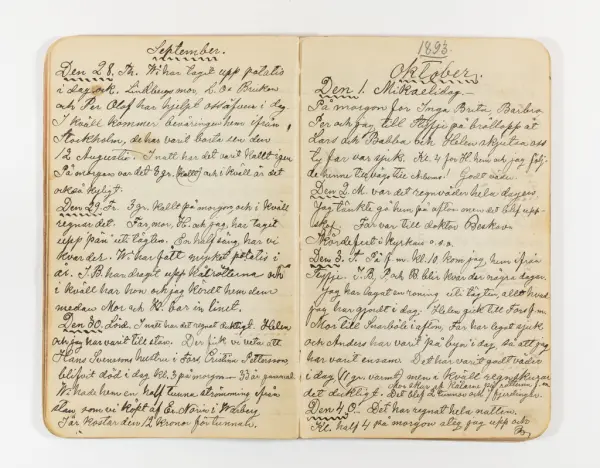 September.
Den 28. Th. Wi har tagit upp potatis
i dag ock. Lindbergs mor, L. Os Brukus
och Per Olof har hjelpt oss äfven i dag
I kväll kommer beväringen hem ifrån
Stockholm, de har varit borta sen den
12 Augusti. I natt har det varit kallt igen
På morgonen var det 3 gr. kallt och i kväll är det
också kyligt.
Den 29. Fr. 3 gr. kallt på morgon och i kväll
regnar det. Far, mor, H. och jag, har tagit
upp "pärä" uti tägten. En half säng har vi
kvar der. Wi har fått mycket potatis i
år. I. B. har dragit upp kålrötterna och
i kväll har hon och jag kördt hem dem
medan Mor och H. bar in linet.
Den 30. Lörd. I natt har det regnat dugtigt. Helen
och jag har varit till stan. Der fik vi veta att
Hans Svensons hustru i Fors Cristina Pettersson
blifvit död i dag kl. 3 på morgon - 33 år gammal
Wi hade hem en half tunna strömming ifrån
stan, som vi köpt af Er. Norin i Warberg
I år kostar den 12 kronor för tunnan.
1893.
Oktober.
Den 1. Mikaelidag.
På morgon for Inga Brita Barbro
Per och jag till Flyjie på bröllopp åt
Lars och Babba och Helen skjutsa oss
ty far var sjuk. Kl. 4 for H. hem och jag följ-
de henne till vägs till Arbuna! Godt väder.
Den 2. M. var det regnväder hela dagen
Jag tänkte gå hem på afton men det blef upp-
skof. Far var till doktor Beskow
Skördefest i kyrkan o.s.v.
Den 3. T. På f. m. kl. 10 kom jag hem ifrån
Flyjie. I. B. P. och B. blir kvar der några dagar.
Jag har lagat en roning uti tägten, allt hvad
jag har gjordt i dag. Helen gick till Fors f. m.
Mor till Snarböle i afton, Far har legat sjuk
och Anders har varit på byn i dag så att jag
har varit ensam. Det har varit godt väder
i dag (11 gr. varmt) men i kväll regnskurar
det duktigt. Det blef 2 tunnor och 7 fjerdingar.
Den 4. O. - Det har regnat hela natten.
Kl. half 4 på morgon steg jag upp och